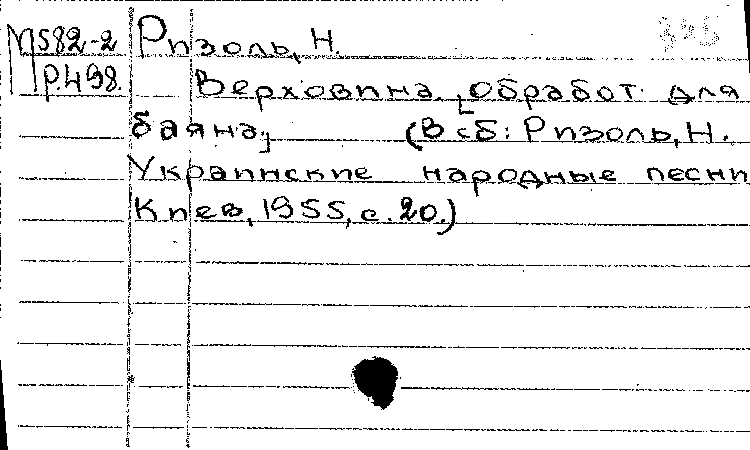 М582-2 Ризоль, Н. 345
Р.498. Верховина. [Обработ. для
баяна] (В сб: Ризоль, Н.
Украинские народные песни
Киев, 1955, с. 20.)